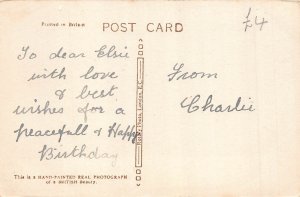 Printed in Britain
POST CARD
£4
To dear Elsie
with love
& best
wishes for a
peacefull & Happy
Birthday
From
Charlie
This is a HAND-PAINTED REAL PHOTOGRAPH
of a BRITISH Beauty.